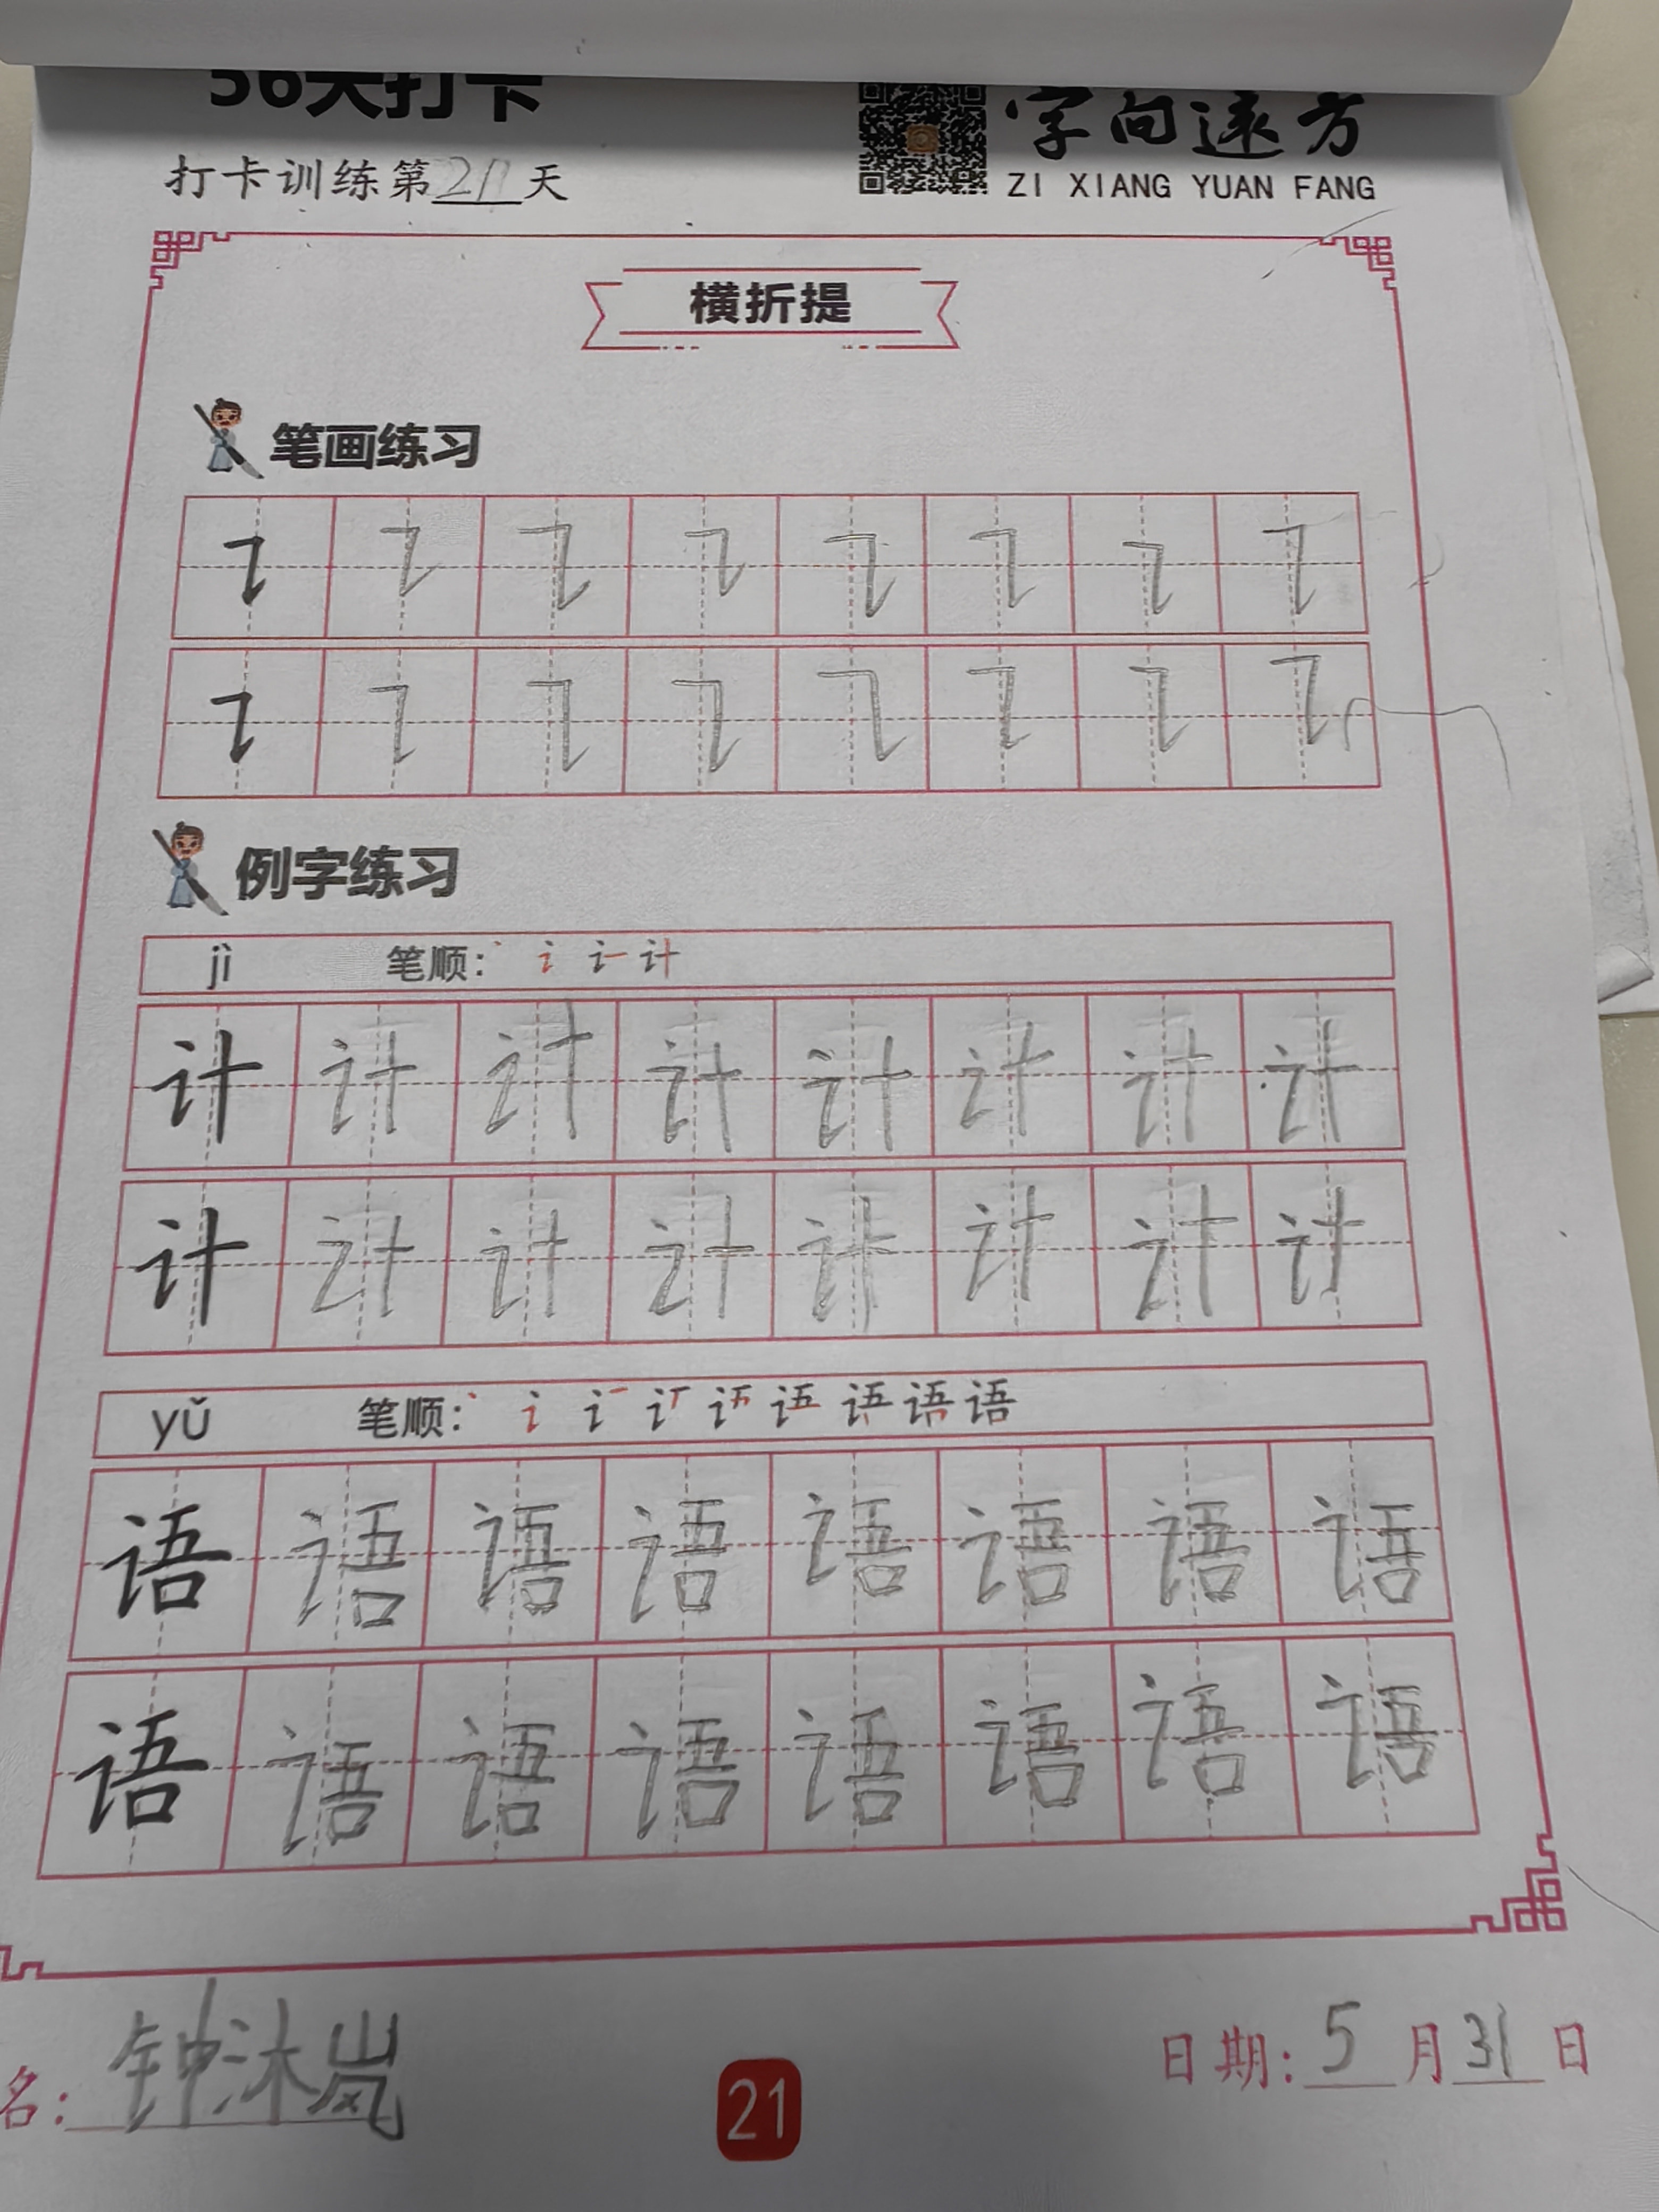 56天打卡
字向远方
打卡训练第21天
ZI XIANG YUAN FANG
横折提
笔画练习
㇊ ㇊ ㇊ ㇊ ㇊ ㇊ ㇊ ㇊
㇊ ㇊ ㇊ ㇊ ㇊ ㇊ ㇊ ㇊
例字练习
jì 笔顺: 丶 讠 计
计 计 计 计 计 计 计 计
计 计 计 计 计 计 计 计
yǔ 笔顺: 丶 讠 语
语 语 语 语 语 语 语 语
语 语 语 语 语 语 语 语
名: 钟沐岚
日期: 5 月 31 日
21